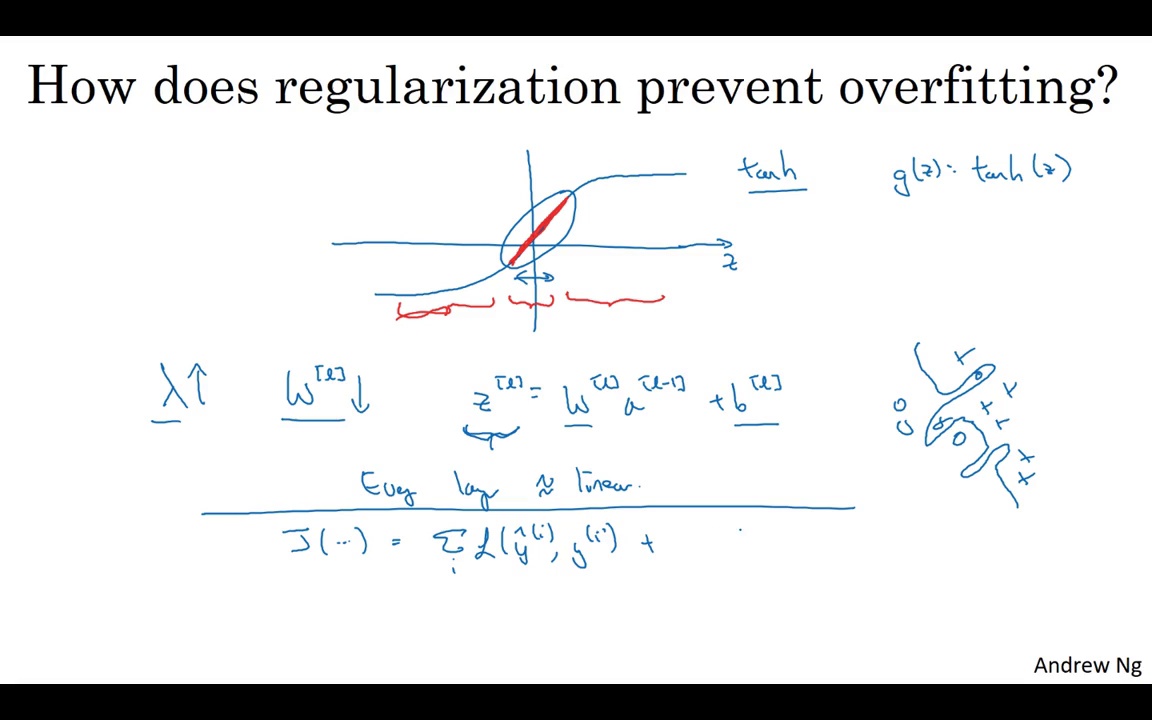 How does regularization prevent overfitting?
tanh g(z) = tanh(z)
z
λ↑ W^[l]↓ z^[l] = W^[l] a^[l-1] + b^[l]
Every layer ≈ linear.
J(...) = Σ_i L(ŷ^(i), y^(i)) +
Andrew Ng